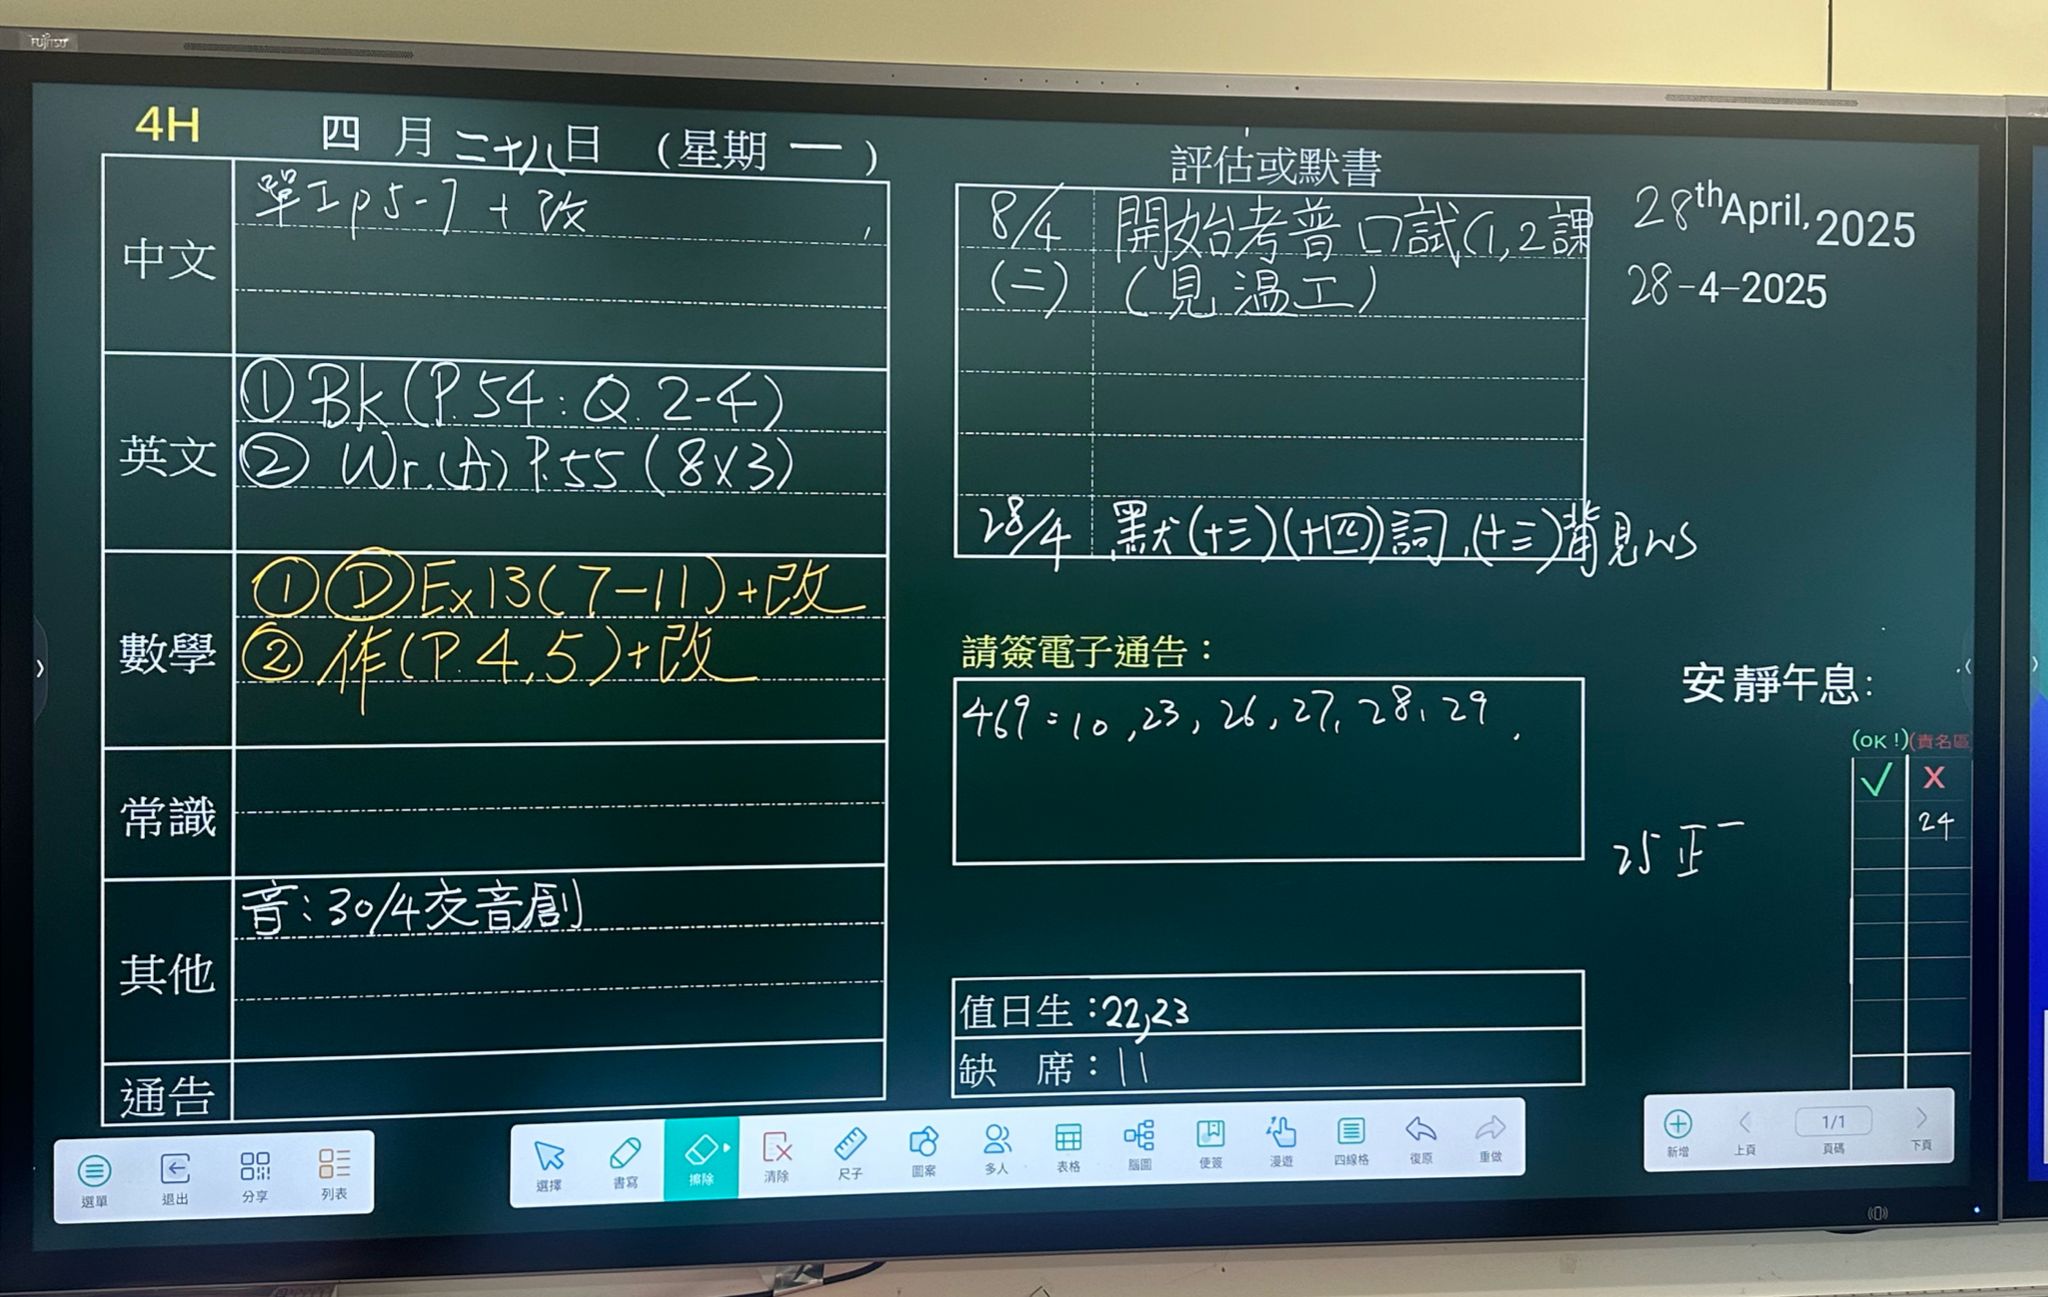 FUJITSU
4H
四月二十八日（星期一）
中文
單工p5-7+改
英文
①Bk(P.54:Q.2-4)
②Wr.(A)P.55(8x3)
數學
①ⒹEx13(7-11)+改
②作(P.4,5)+改
常識
其他
音:30/4交音創
通告
評估或默書
8/4 開始考普口試(1,2課
(二) (見溫工)
28/4 默(十三)(十四)詞,(十三)背見WS
請簽電子通告：
469=10,23,26,27,28,29
值日生：22,23
缺 席：11
28th April, 2025
28-4-2025
安靜午息：
(OK!)(責名區
✓ X
24
25 正一
選單 退出 分享 列表
選擇 書寫 擦除 清除 尺子 圖案 多人 表格 腦圖 便簽 漫遊 四線格 復原 重做
新增 上頁 1/1 頁碼 下頁